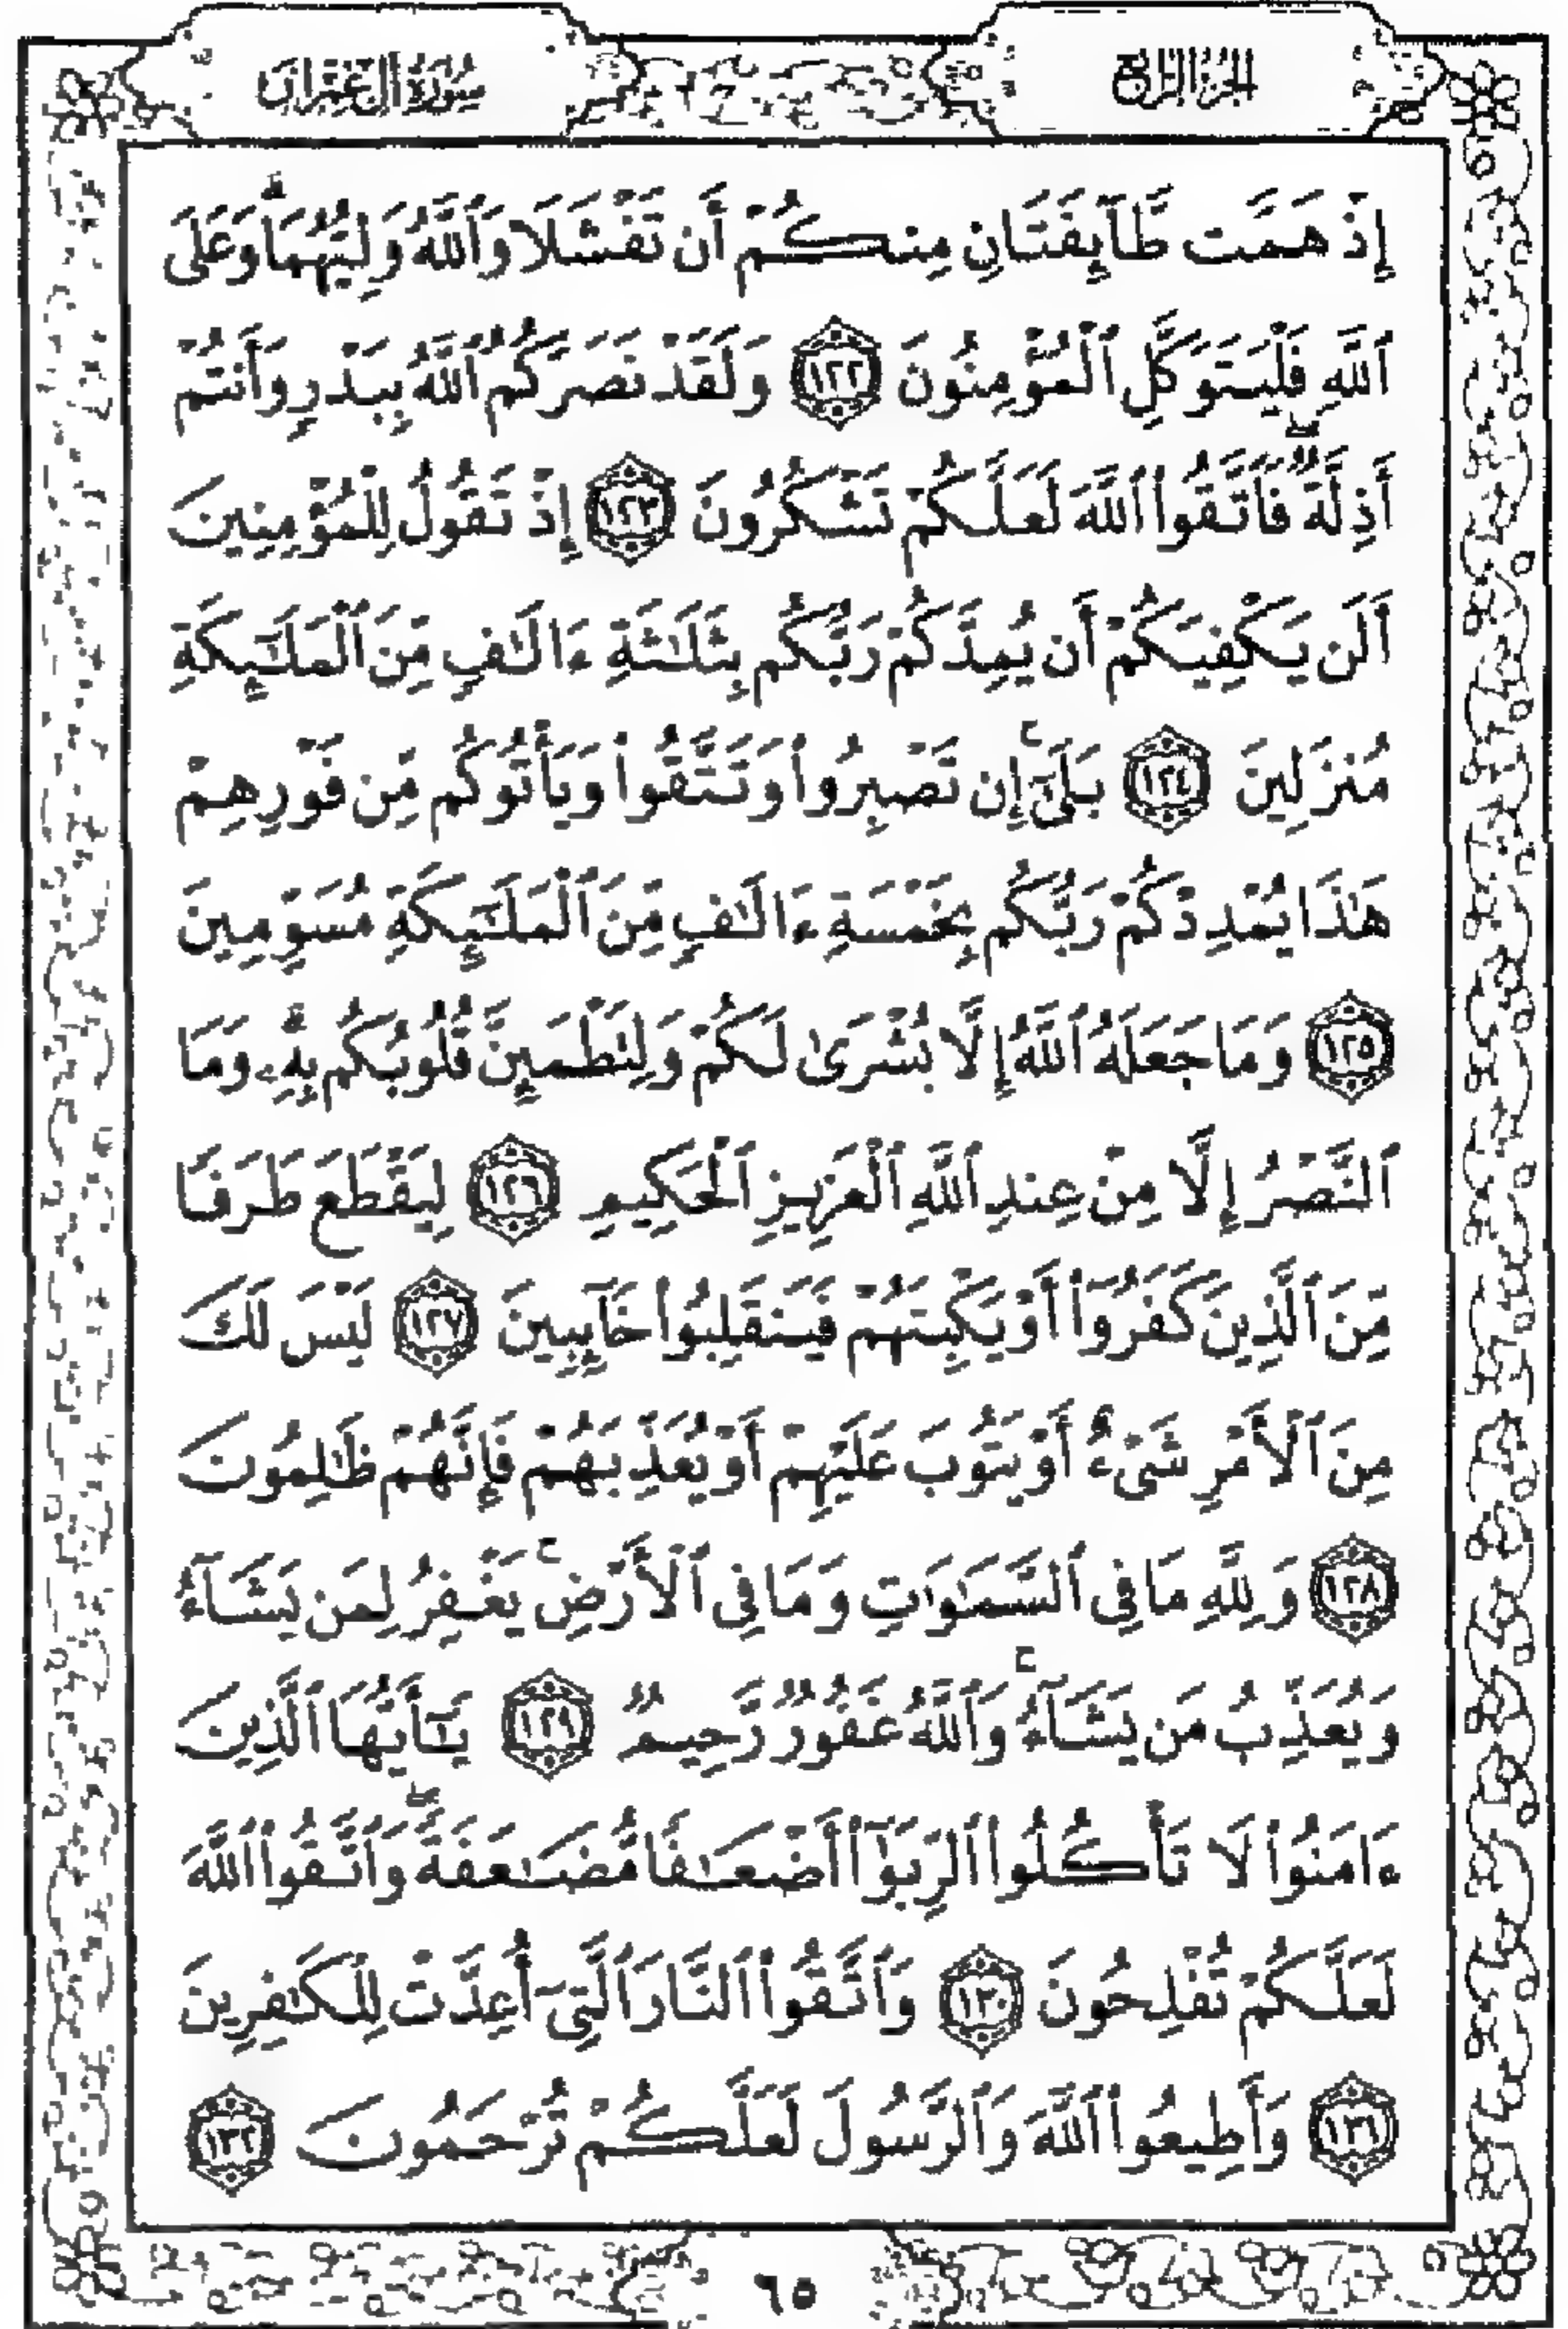 الجزء الرابع
سورة آل عمران
إِذْ هَمَّت طَّآئِفَتَانِ مِنكُمْ أَن تَفْشَلَا وَٱللَّهُ وَلِيُّهُمَا ۗ وَعَلَى
ٱللَّهِ فَلْيَتَوَكَّلِ ٱلْمُؤْمِنُونَ ١٢٢ وَلَقَدْ نَصَرَكُمُ ٱللَّهُ بِبَدْرٍ وَأَنتُمْ
أَذِلَّةٌ ۖ فَٱتَّقُوا۟ ٱللَّهَ لَعَلَّكُمْ تَشْكُرُونَ ١٢٣ إِذْ تَقُولُ لِلْمُؤْمِنِينَ
أَلَن يَكْفِيَكُمْ أَن يُمِدَّكُمْ رَبُّكُم بِثَلَـٰثَةِ ءَالَـٰفٍ مِّنَ ٱلْمَلَـٰٓئِكَةِ
مُنزَلِينَ ١٢٤ بَلَىٰٓ ۚ إِن تَصْبِرُوا۟ وَتَتَّقُوا۟ وَيَأْتُوكُم مِّن فَوْرِهِمْ
هَـٰذَا يُمْدِدْكُمْ رَبُّكُم بِخَمْسَةِ ءَالَـٰفٍ مِّنَ ٱلْمَلَـٰٓئِكَةِ مُسَوِّمِينَ
١٢٥ وَمَا جَعَلَهُ ٱللَّهُ إِلَّا بُشْرَىٰ لَكُمْ وَلِتَطْمَئِنَّ قُلُوبُكُم بِهِۦ ۗ وَمَا
ٱلنَّصْرُ إِلَّا مِنْ عِندِ ٱللَّهِ ٱلْعَزِيزِ ٱلْحَكِيمِ ١٢٦ لِيَقْطَعَ طَرَفًا
مِّنَ ٱلَّذِينَ كَفَرُوٓا۟ أَوْ يَكْبِتَهُمْ فَيَنقَلِبُوا۟ خَآئِبِينَ ١٢٧ لَيْسَ لَكَ
مِنَ ٱلْأَمْرِ شَىْءٌ أَوْ يَتُوبَ عَلَيْهِمْ أَوْ يُعَذِّبَهُمْ فَإِنَّهُمْ ظَـٰلِمُونَ
١٢٨ وَلِلَّهِ مَا فِى ٱلسَّمَـٰوَٰتِ وَمَا فِى ٱلْأَرْضِ ۚ يَغْفِرُ لِمَن يَشَآءُ
وَيُعَذِّبُ مَن يَشَآءُ ۚ وَٱللَّهُ غَفُورٌ رَّحِيمٌ ١٢٩ يَـٰٓأَيُّهَا ٱلَّذِينَ
ءَامَنُوا۟ لَا تَأْكُلُوا۟ ٱلرِّبَوٰٓا۟ أَضْعَـٰفًا مُّضَـٰعَفَةً ۖ وَٱتَّقُوا۟ ٱللَّهَ
لَعَلَّكُمْ تُفْلِحُونَ ١٣٠ وَٱتَّقُوا۟ ٱلنَّارَ ٱلَّتِىٓ أُعِدَّتْ لِلْكَـٰفِرِينَ
١٣١ وَأَطِيعُوا۟ ٱللَّهَ وَٱلرَّسُولَ لَعَلَّكُمْ تُرْحَمُونَ ١٣٢
٦٥